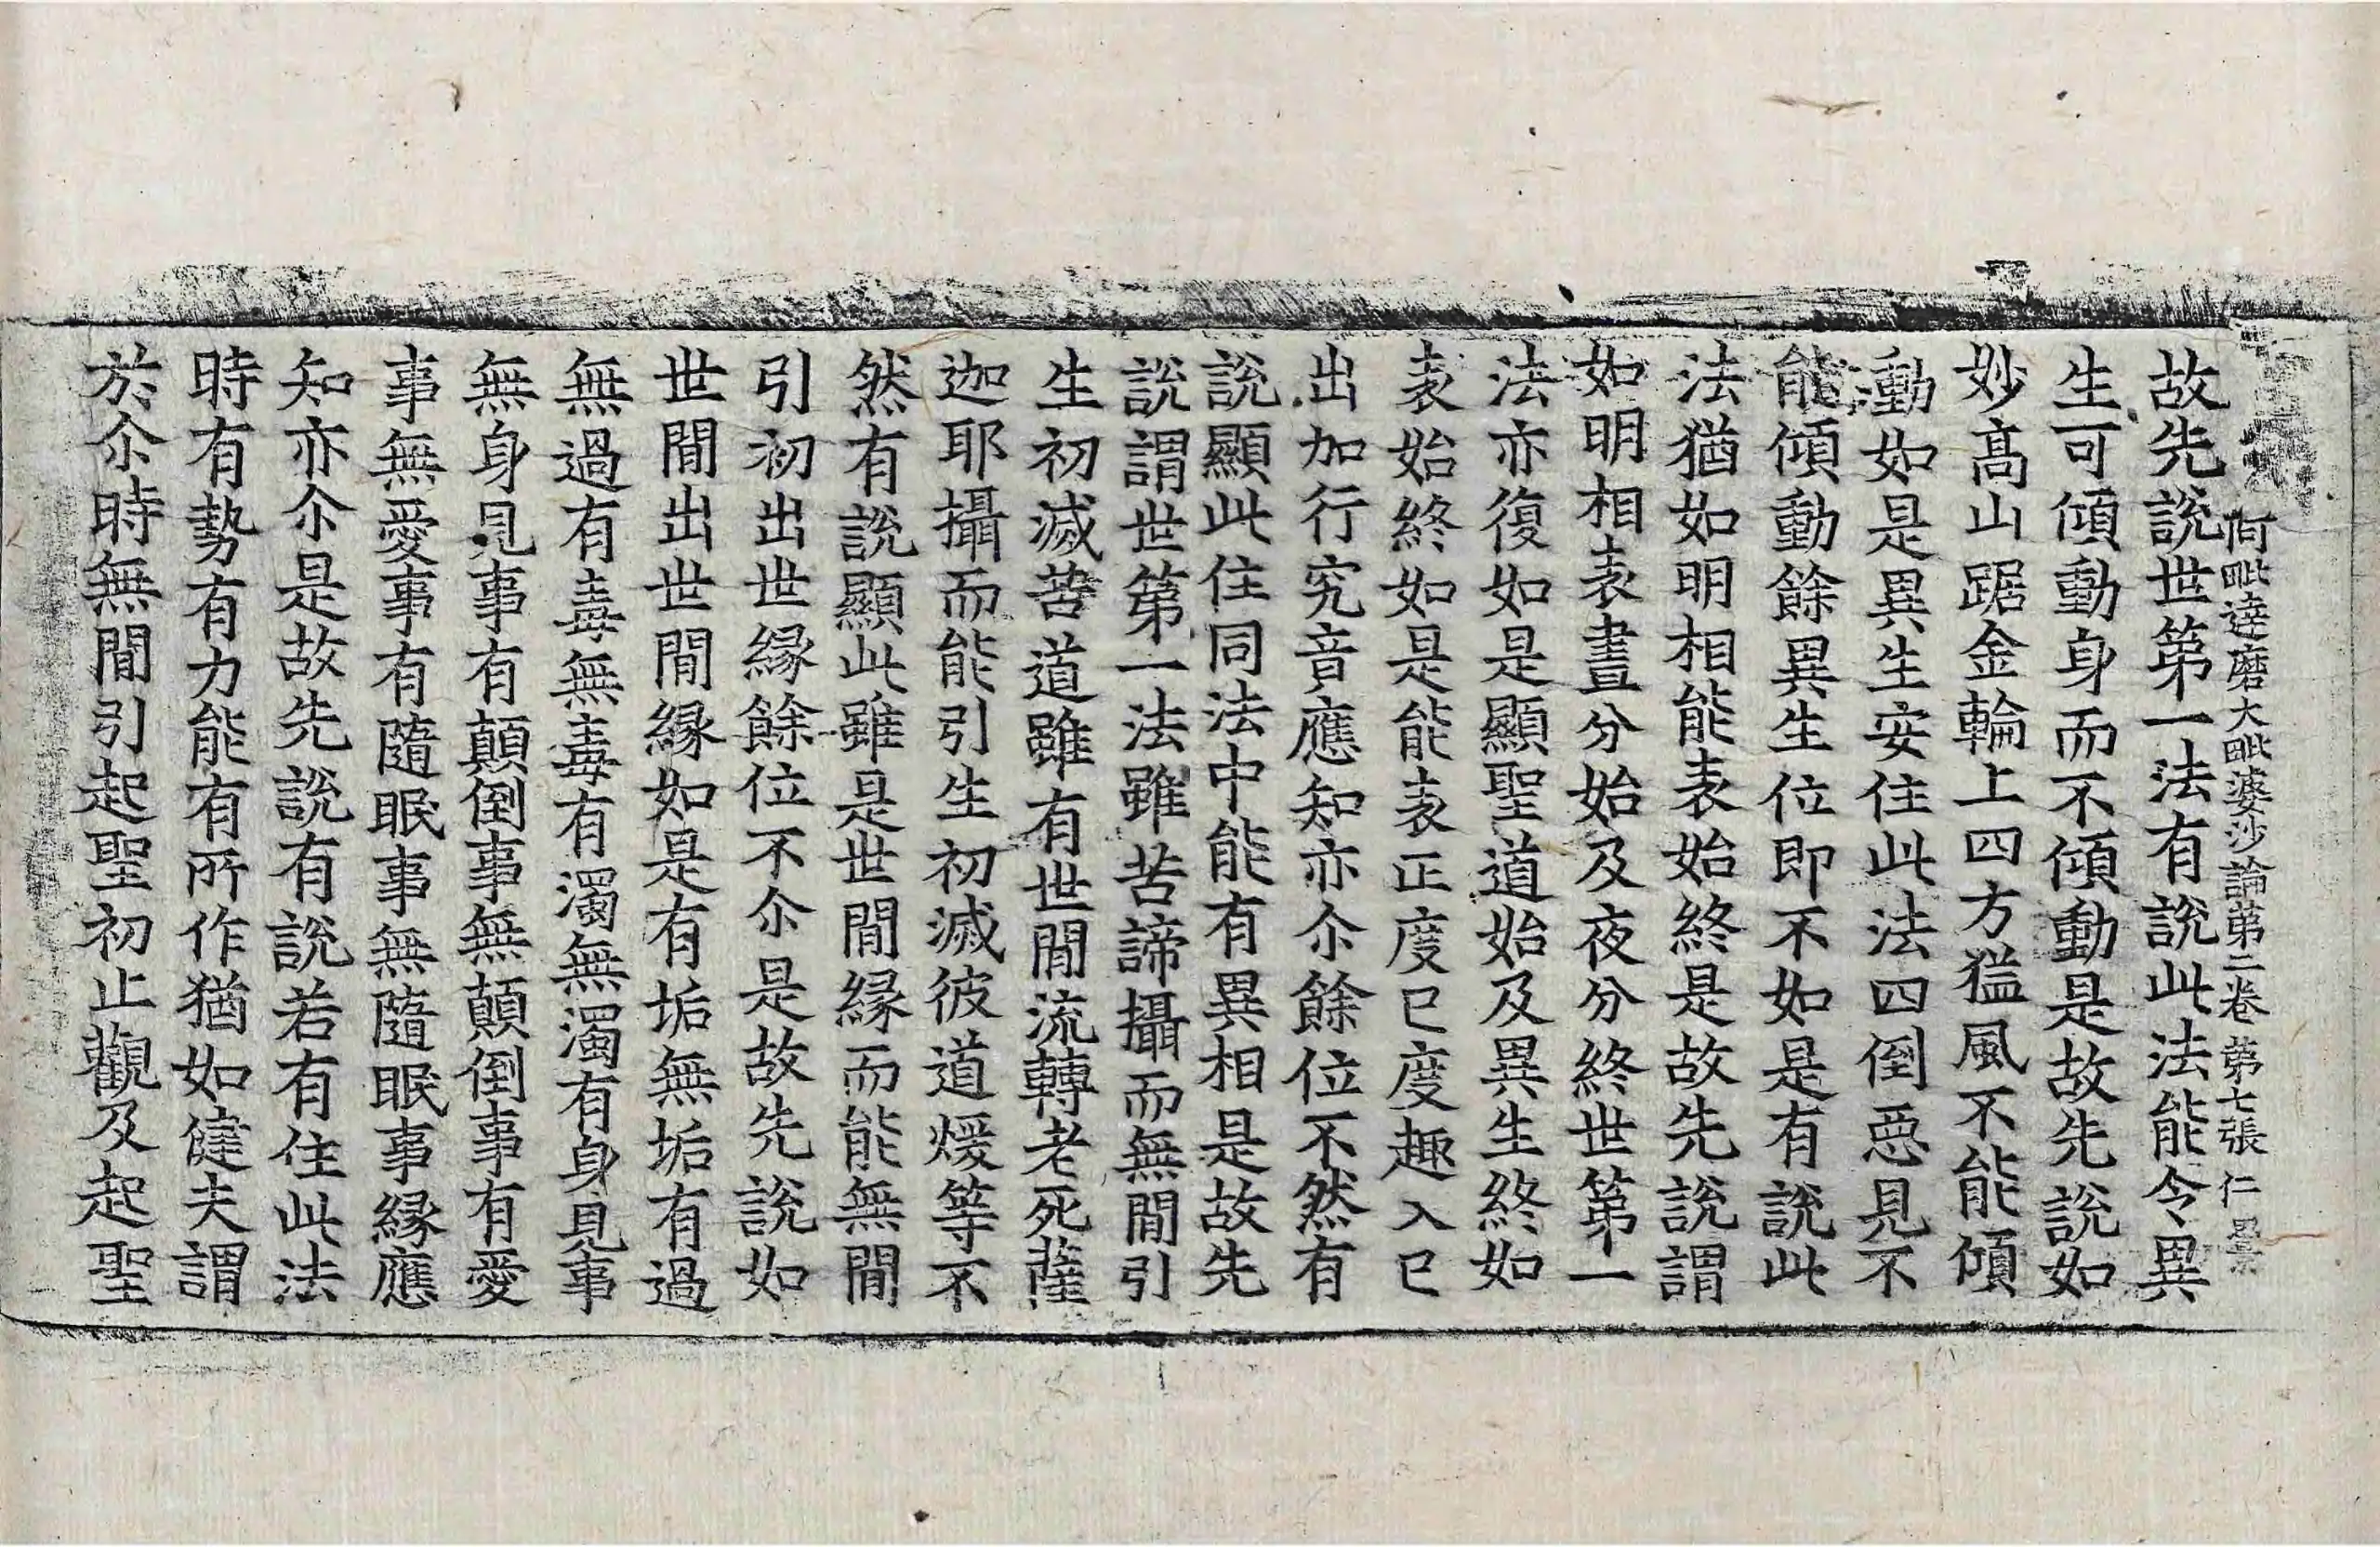 阿毗達磨大毗婆沙論第二卷 第七張 仁
故先說世第一法有說此法能令異
生可傾動身而不傾動是故先說如
妙高山踞金輪上四方猛風不能傾
動如是異生安住此法四倒惡見不
能傾動餘異生位即不如是有說此
法猶如明相能表始終是故先說謂
如明相表晝分始及夜分終世第一
法亦復如是顯聖道始及異生終如
表始終如是能表正度已度趣入已
出加行究音應知亦尒餘位不然有
說顯此住同法中能有異相是故先
說謂世第一法雖苦諦攝而無閒引
生初滅苦道雖有世閒流轉老死薩
迦耶攝而能引生初滅彼道煖等不
然有說顯此雖是世閒緣而能無閒
引初出世緣餘位不尒是故先說如
世閒出世世閒緣如是有垢無垢有過
無過有毒無毒有濁無濁有身見事
無身見事有顛倒事無顛倒事有愛
事無愛事有隨眠事無隨眠事緣應
知亦尒是故先說有說若有住此法
時有勢有力能有所作猶如健夫謂
於尒時無閒引起聖初止觀及起聖